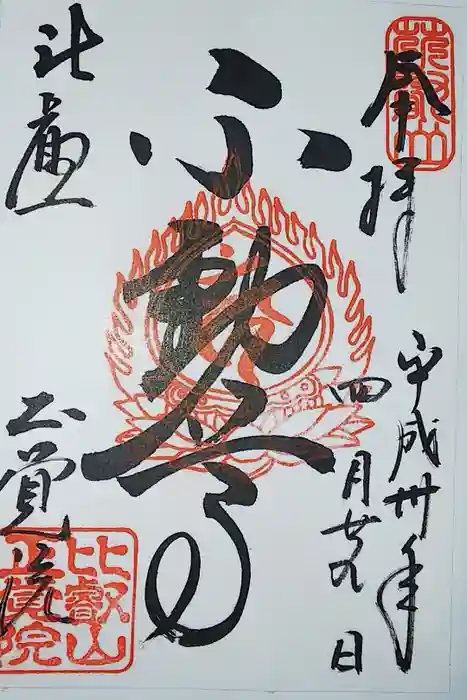 奉拝
平成卅一年
四月廿九日
不動尊
比叡山
正覚院
比叡山
正覚院